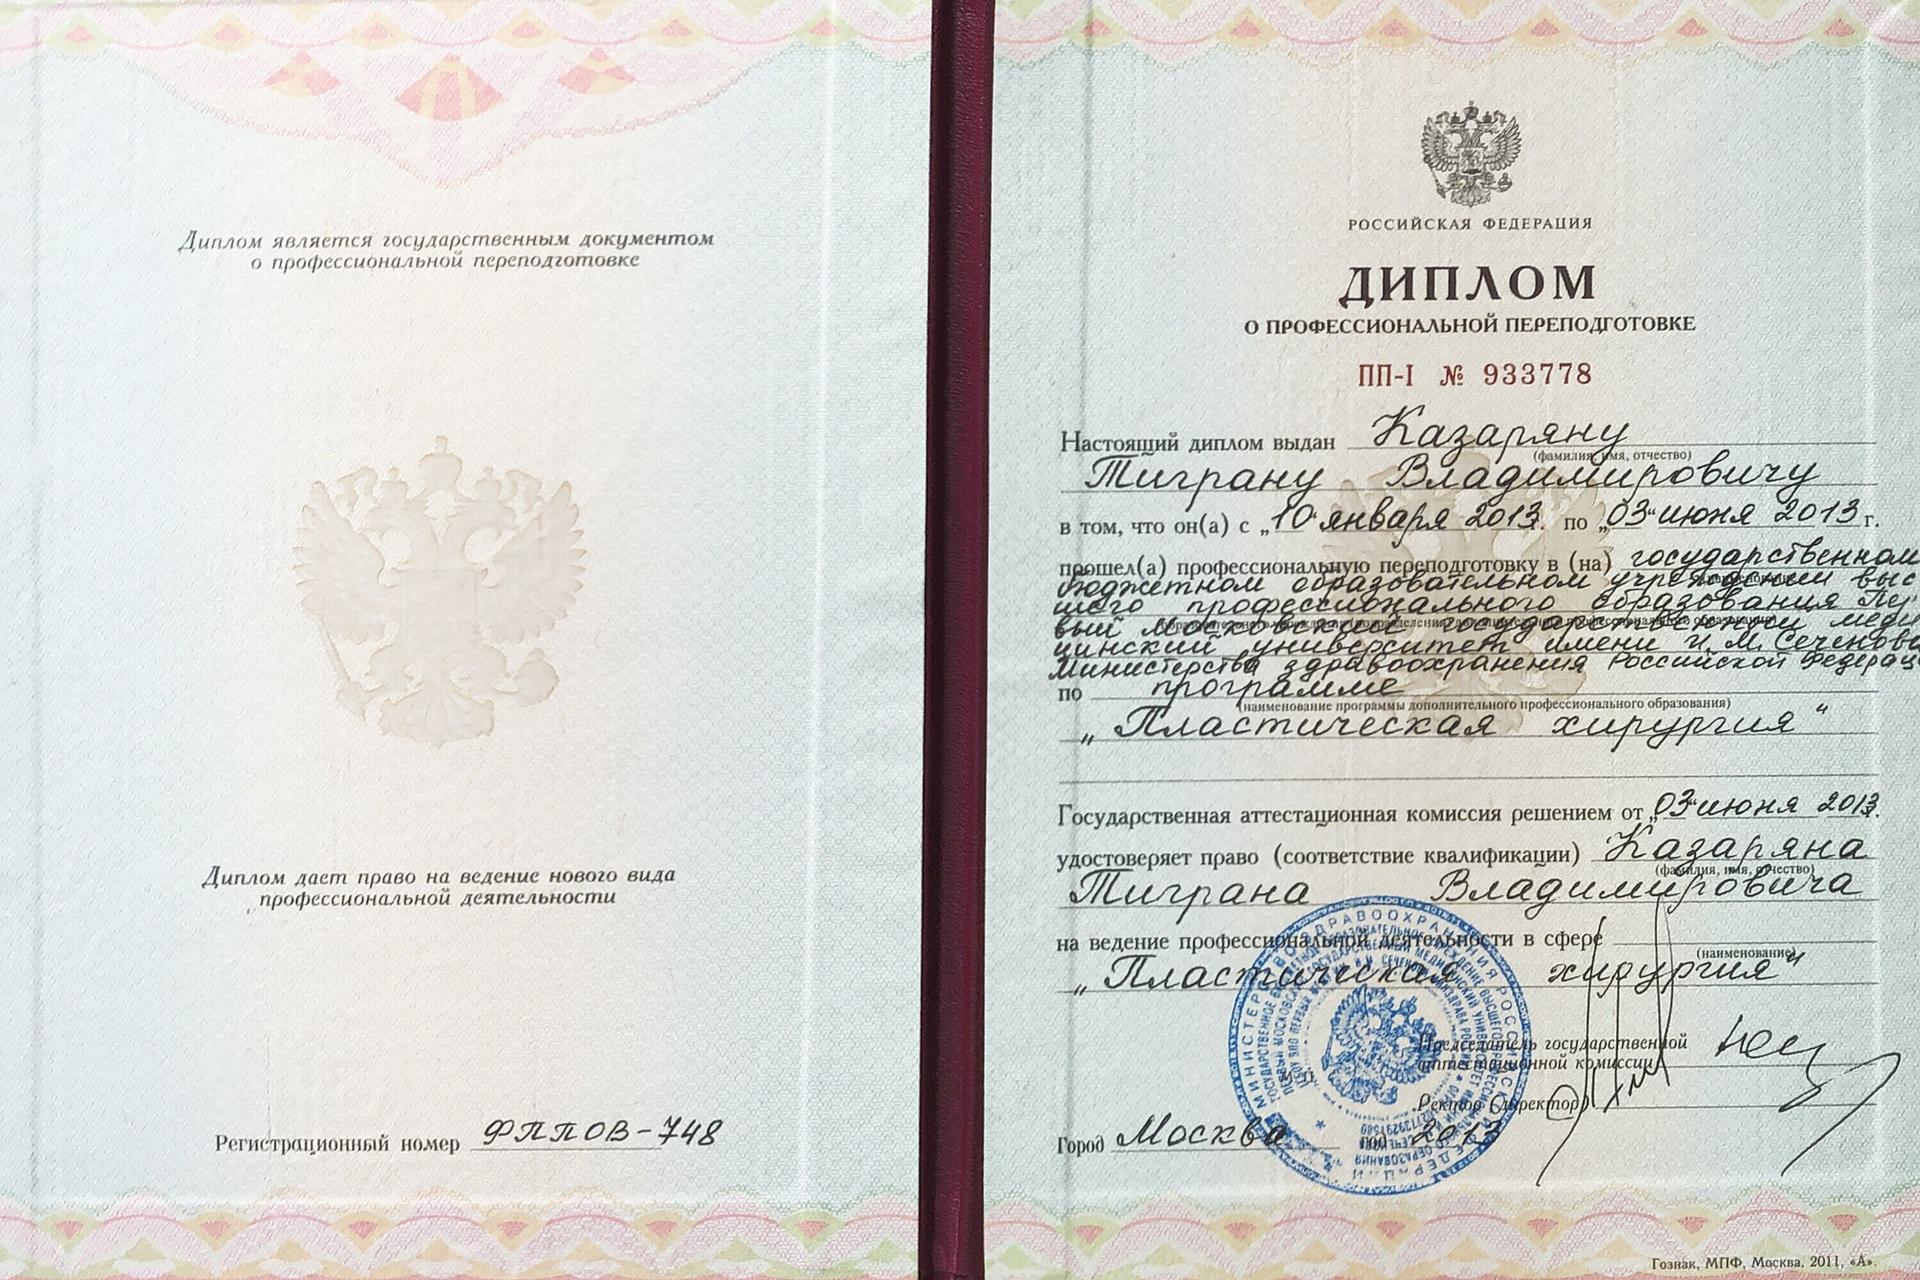 Диплом является государственным документом
о профессиональной переподготовке
Диплом дает право на ведение нового вида
профессиональной деятельности
Регистрационный номер ФППОВ-748
РОССИЙСКАЯ ФЕДЕРАЦИЯ
ДИПЛОМ
О ПРОФЕССИОНАЛЬНОЙ ПЕРЕПОДГОТОВКЕ
ПП-I № 933778
Настоящий диплом выдан Казаряну
(фамилия, имя, отчество)
Тиграну Владимировичу
в том, что он(а) с „10“ января 2013. по „03“ июня 2013 г.
прошел(а) профессиональную переподготовку в (на) государственном
бюджетном образовательном учреждении выс
шего профессионального образования Пер
вый Московский государственный меди
цинский университет имени И.М. Сеченова
Министерства здравоохранения Российской Федерац
по программе
(наименование программы дополнительного профессионального образования)
„Пластическая хирургия“
Государственная аттестационная комиссия решением от „03“ июня 2013.
удостоверяет право (соответствие квалификации) Казаряна
(фамилия, имя, отчество)
Тиграна Владимировича
на ведение профессиональной деятельности в сфере
(наименование)
„Пластическая хирургия“
Председатель государственной
аттестационной комиссии
Ректор (директор)
Город Москва год 2013
Гознак, МПФ, Москва, 2011, «А».